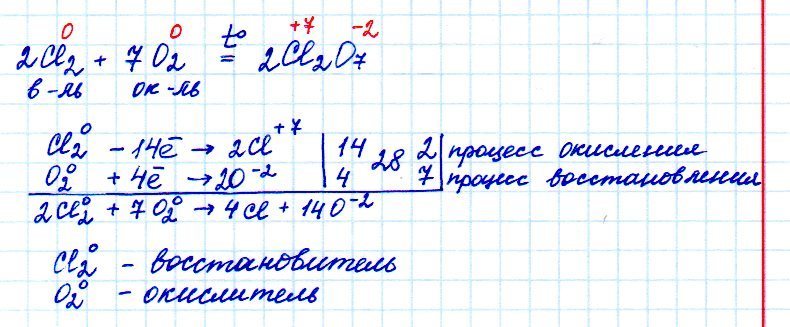 0 0 t° +7 -2
2Cl₂ + 7O₂ = 2Cl₂O₇
в-ль ок-ль
Cl₂⁰ - 14ē → 2Cl⁺⁷ | 14 28 2 | процесс окисления
O₂⁰ + 4ē → 2O⁻² | 4 7 | процесс восстановления
2Cl₂⁰ + 7O₂⁰ → 4Cl + 14O⁻²
Cl₂⁰ - восстановитель
O₂⁰ - окислитель